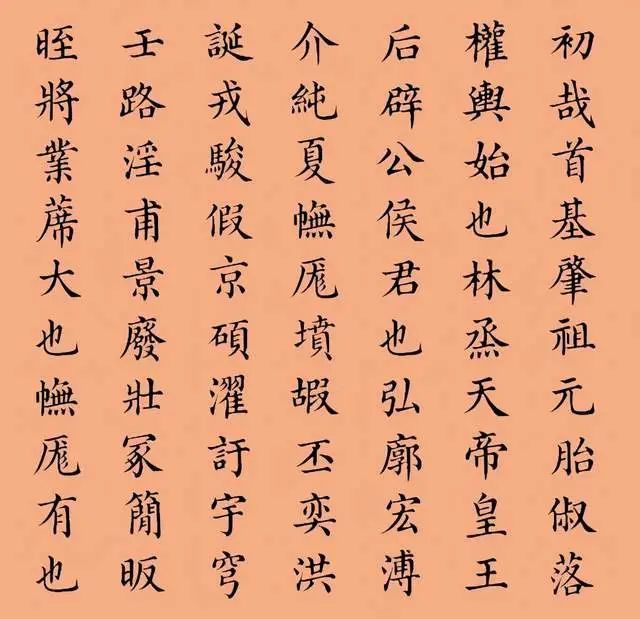 初哉首基肇祖元胎俶落
權輿始也林烝天帝皇王
后辟公侯君也弘廓宏溥
介純夏幠厖墳嘏丕奕洪
誕戎駿假京碩濯訏宇穹
壬路淫甫景廢壯冢簡昄
晊將業蓆大也幠厖有也